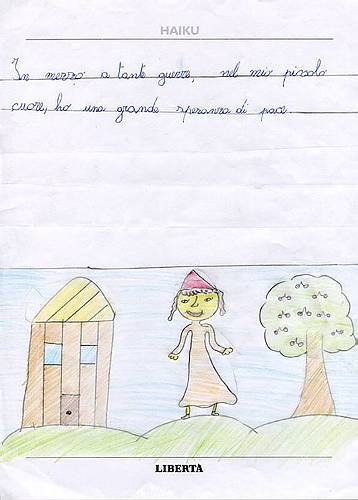 HAIKU
In mezzo a tante guerre, nel mio piccolo
cuore, ho una grande speranza di pace.
LIBERTÀ